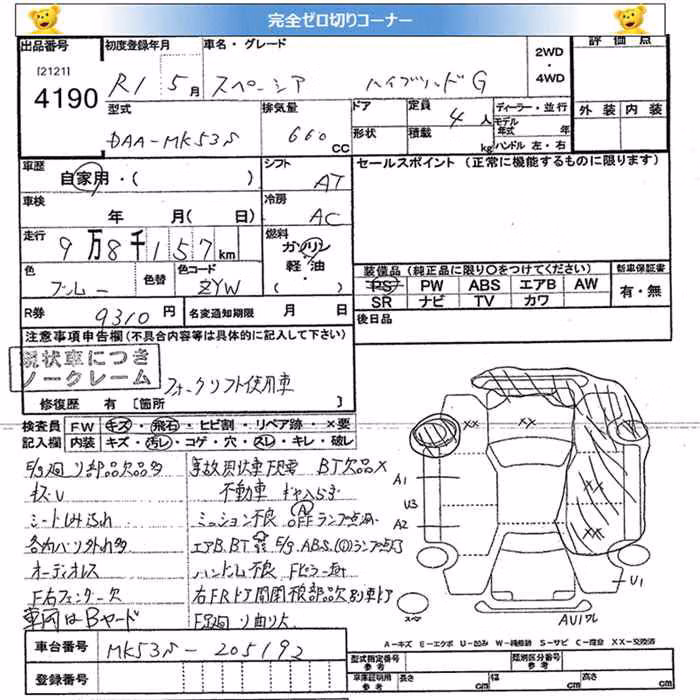 完全ゼロ切りコーナー
出品番号 初度登録年月 車名・グレード 2WD・4WD 評価点
[2121]
4190 R1 5月 スペーシア ハイブリッドG
型式 排気量 ドア 定員 4人 ディーラー・並行 外装 内装
DAA-MK53S 660cc 形状 積載 kg モデル年式 年
ハンドル 左・右
車歴 自家用・( ) シフト AT セールスポイント (正常に機能するものに限ります)
車検 年 月( 日) 冷房 AC
走行 9万8千157km 燃料 ガソリン・軽油・( )
色 ブルー 色替 色コード ZYW
装備品 (純正品に限り○をつけてください) 新車保証書
PS PW ABS エアB AW 有・無
SR ナビ TV カワ
R券 9310円 名変通知期限 月 日 後日品
注意事項申告欄 (不具合内容等は具体的に記入して下さい)
現状車につき
ノークレーム
フォークリフト使用車
修復歴 有 [箇所 ]
検査員 FW キズ・飛石・ヒビ割・リペア跡・×要
記入欄 内装 キズ・汚レ・コゲ・穴・スレ・キレ・破レ
E/g廻り部品欠品多 事故現状車 BT欠品×
キズU 不動車
シートしみ汚れ ミッション不良 Ⓐ OFFランプ点滅
各内バリ外れ多 エアB.BT E/g.ABS.(!)ランプ点灯
オーディオレス ハンドル不良 Fピラー曲り
F右フェンダー欠 右FRドア開閉 部品欠 別車ドア
車両はBヤード F足廻り曲り大
A1
U3
A2
XX
XX
XX
XX
U1
AU1ワレ
スペア
A-キズ E-エクボ U-凹み W-補修跡 S-サビ C-腐食 XX-交換済
車台番号 MK53S-205192
型式指定番号 参考 類別区分番号 参考
登録番号
車庫証明用 参考 長さ cm 幅 cm 高さ cm